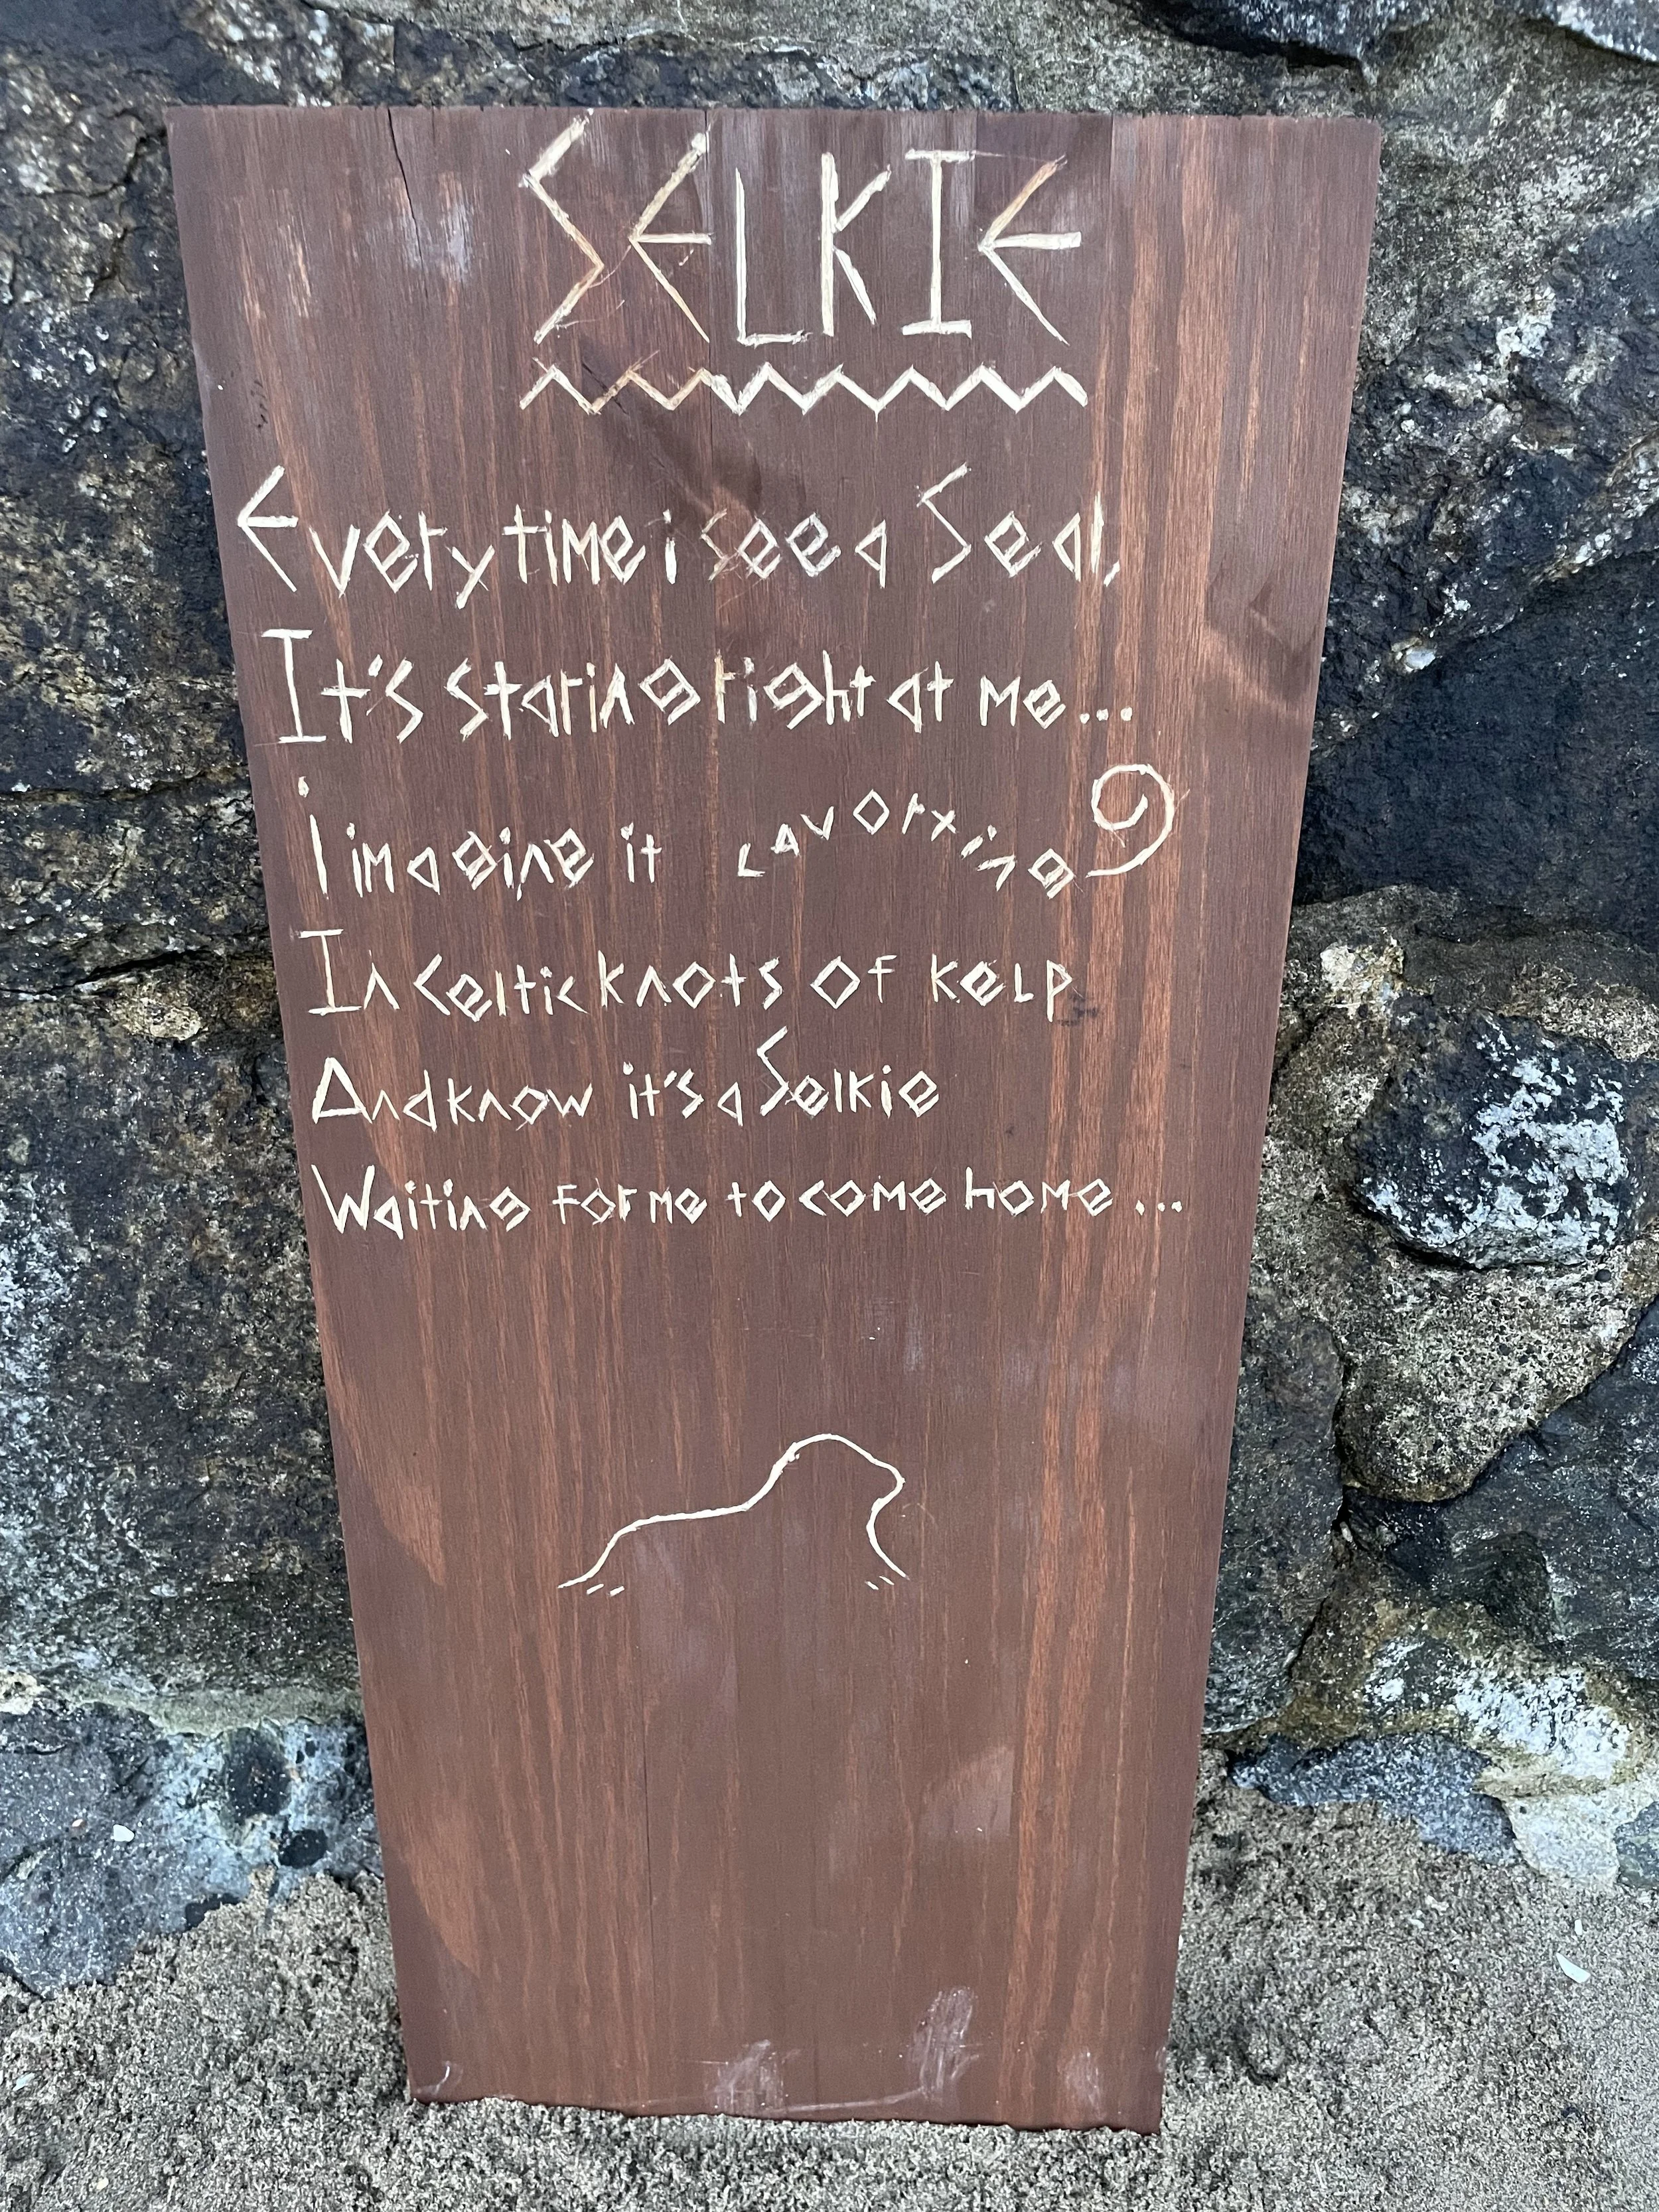 SELKIE
Every time i see a Seal,
It's staring right at me...
i imagine it cavorting
In celtic knots of kelp
And know it's a Selkie
Waiting for me to come home...